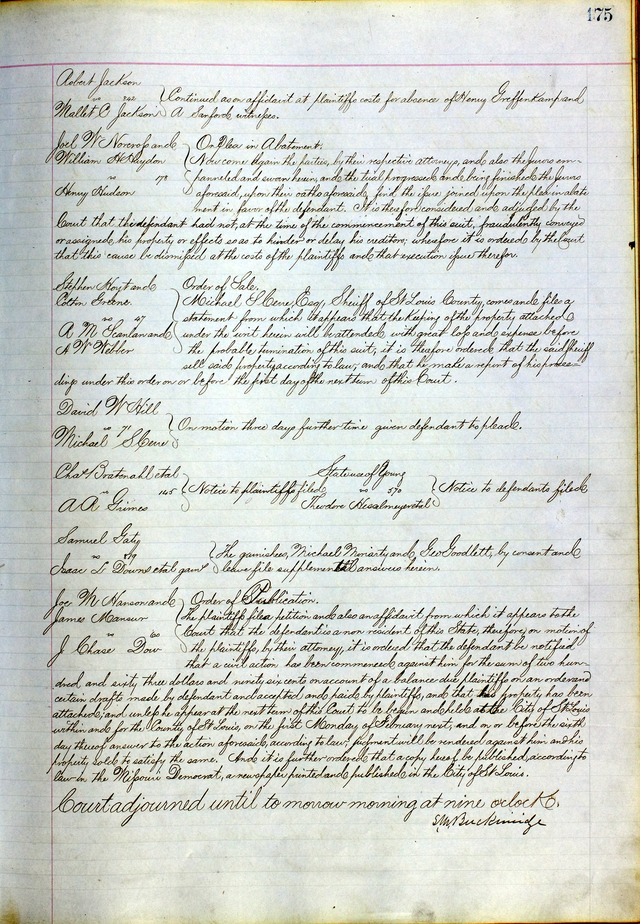 175
Robert Jackson
vs 242 Continued as on affidavit at plaintiffs costs for absence of Henry Greffenkamp and
Mallet C Jackson A Sanford witnesses.
Joel W Norcross and On Plea in Abatement.
William H Haydon Now come again the parties, by their respective attorneys, and also the jurors em-
vs 173 panneled and sworn herein, and the trial progressed and being finished the jurors
Henry Hudson aforesaid, upon their oaths aforesaid, find the issue joined upon the plea in abate
ment in favor of the defendant. It is therefore considered and adjudged by the
Court that the defendant had not, at the time of the commencement of this suit, fraudulently conveyed
or assigned his property or effects so as to hinder or delay his creditors; wherefore it is ordered by the Court
that this cause be dismissed at the costs of the plaintiffs and that execution issue therefor.
Stephen Hoyt and Order of Sale.
Colton Greene. Michael S Cerre, Esq, Sheriff of St Louis County, comes and files a
vs 47 statement from which it appears that the keeping of the property, attached
A M Scanlan and under the writ herein will be attended with great loss and expense before
A W Webber the probable termination of this suit, it is therefore ordered that the said Sheriff
sell said property according to law, and that he make a report of his procee-
ding under this order on or before the first day of the next term of this Court.
David W Hill
vs 71 On motion three days further time given defendant to plead.
Michael S Cerre
Chas Bratenahl etal State use of Young
vs 145 Notice to plaintiffs filed vs 570 Notice to defendants filed
A A Grimes Theodore Kisalmeyer etal
Samuel Gaty
vs 579 The garnishees, Michael Moriarty and Geo Goodlett, by consent and
Isaac L Downs etal garn leave file supplemental answers herein.
Joe M Hanson and Order of Publication.
James Mansur The plaintiffs file a petition and also an affidavit from which it appears to the
vs 60 Court that the defendant is a non resident of this State, therefore, on motion of
J Chase Dow the plaintiffs, by their attorney, it is ordered that the defendant be notified
that a civil action has been commenced against him for the sum of two hun-
dred and sixty three dollars and ninety six cents on account of a balance due plaintiffs on an order and
certain drafts made by defendant and accepted and paid by plaintiffs, and that his property has been
attached, and unless he appear at the next term of this Court to be begun and held at the City of St Louis
within and for the County of St Louis, on the first Monday of February next, and on or before the sixth
day thereof answer to the action aforesaid, according to law, judgment will be rendered against him and his
property sold to satisfy the same. And it is further ordered that a copy hereof be published, according to
law in the Missouri Democrat, a newspaper printed and published in the City of St Louis.
Court adjourned until to morrow morning at nine oclock.
S M Breckinridge